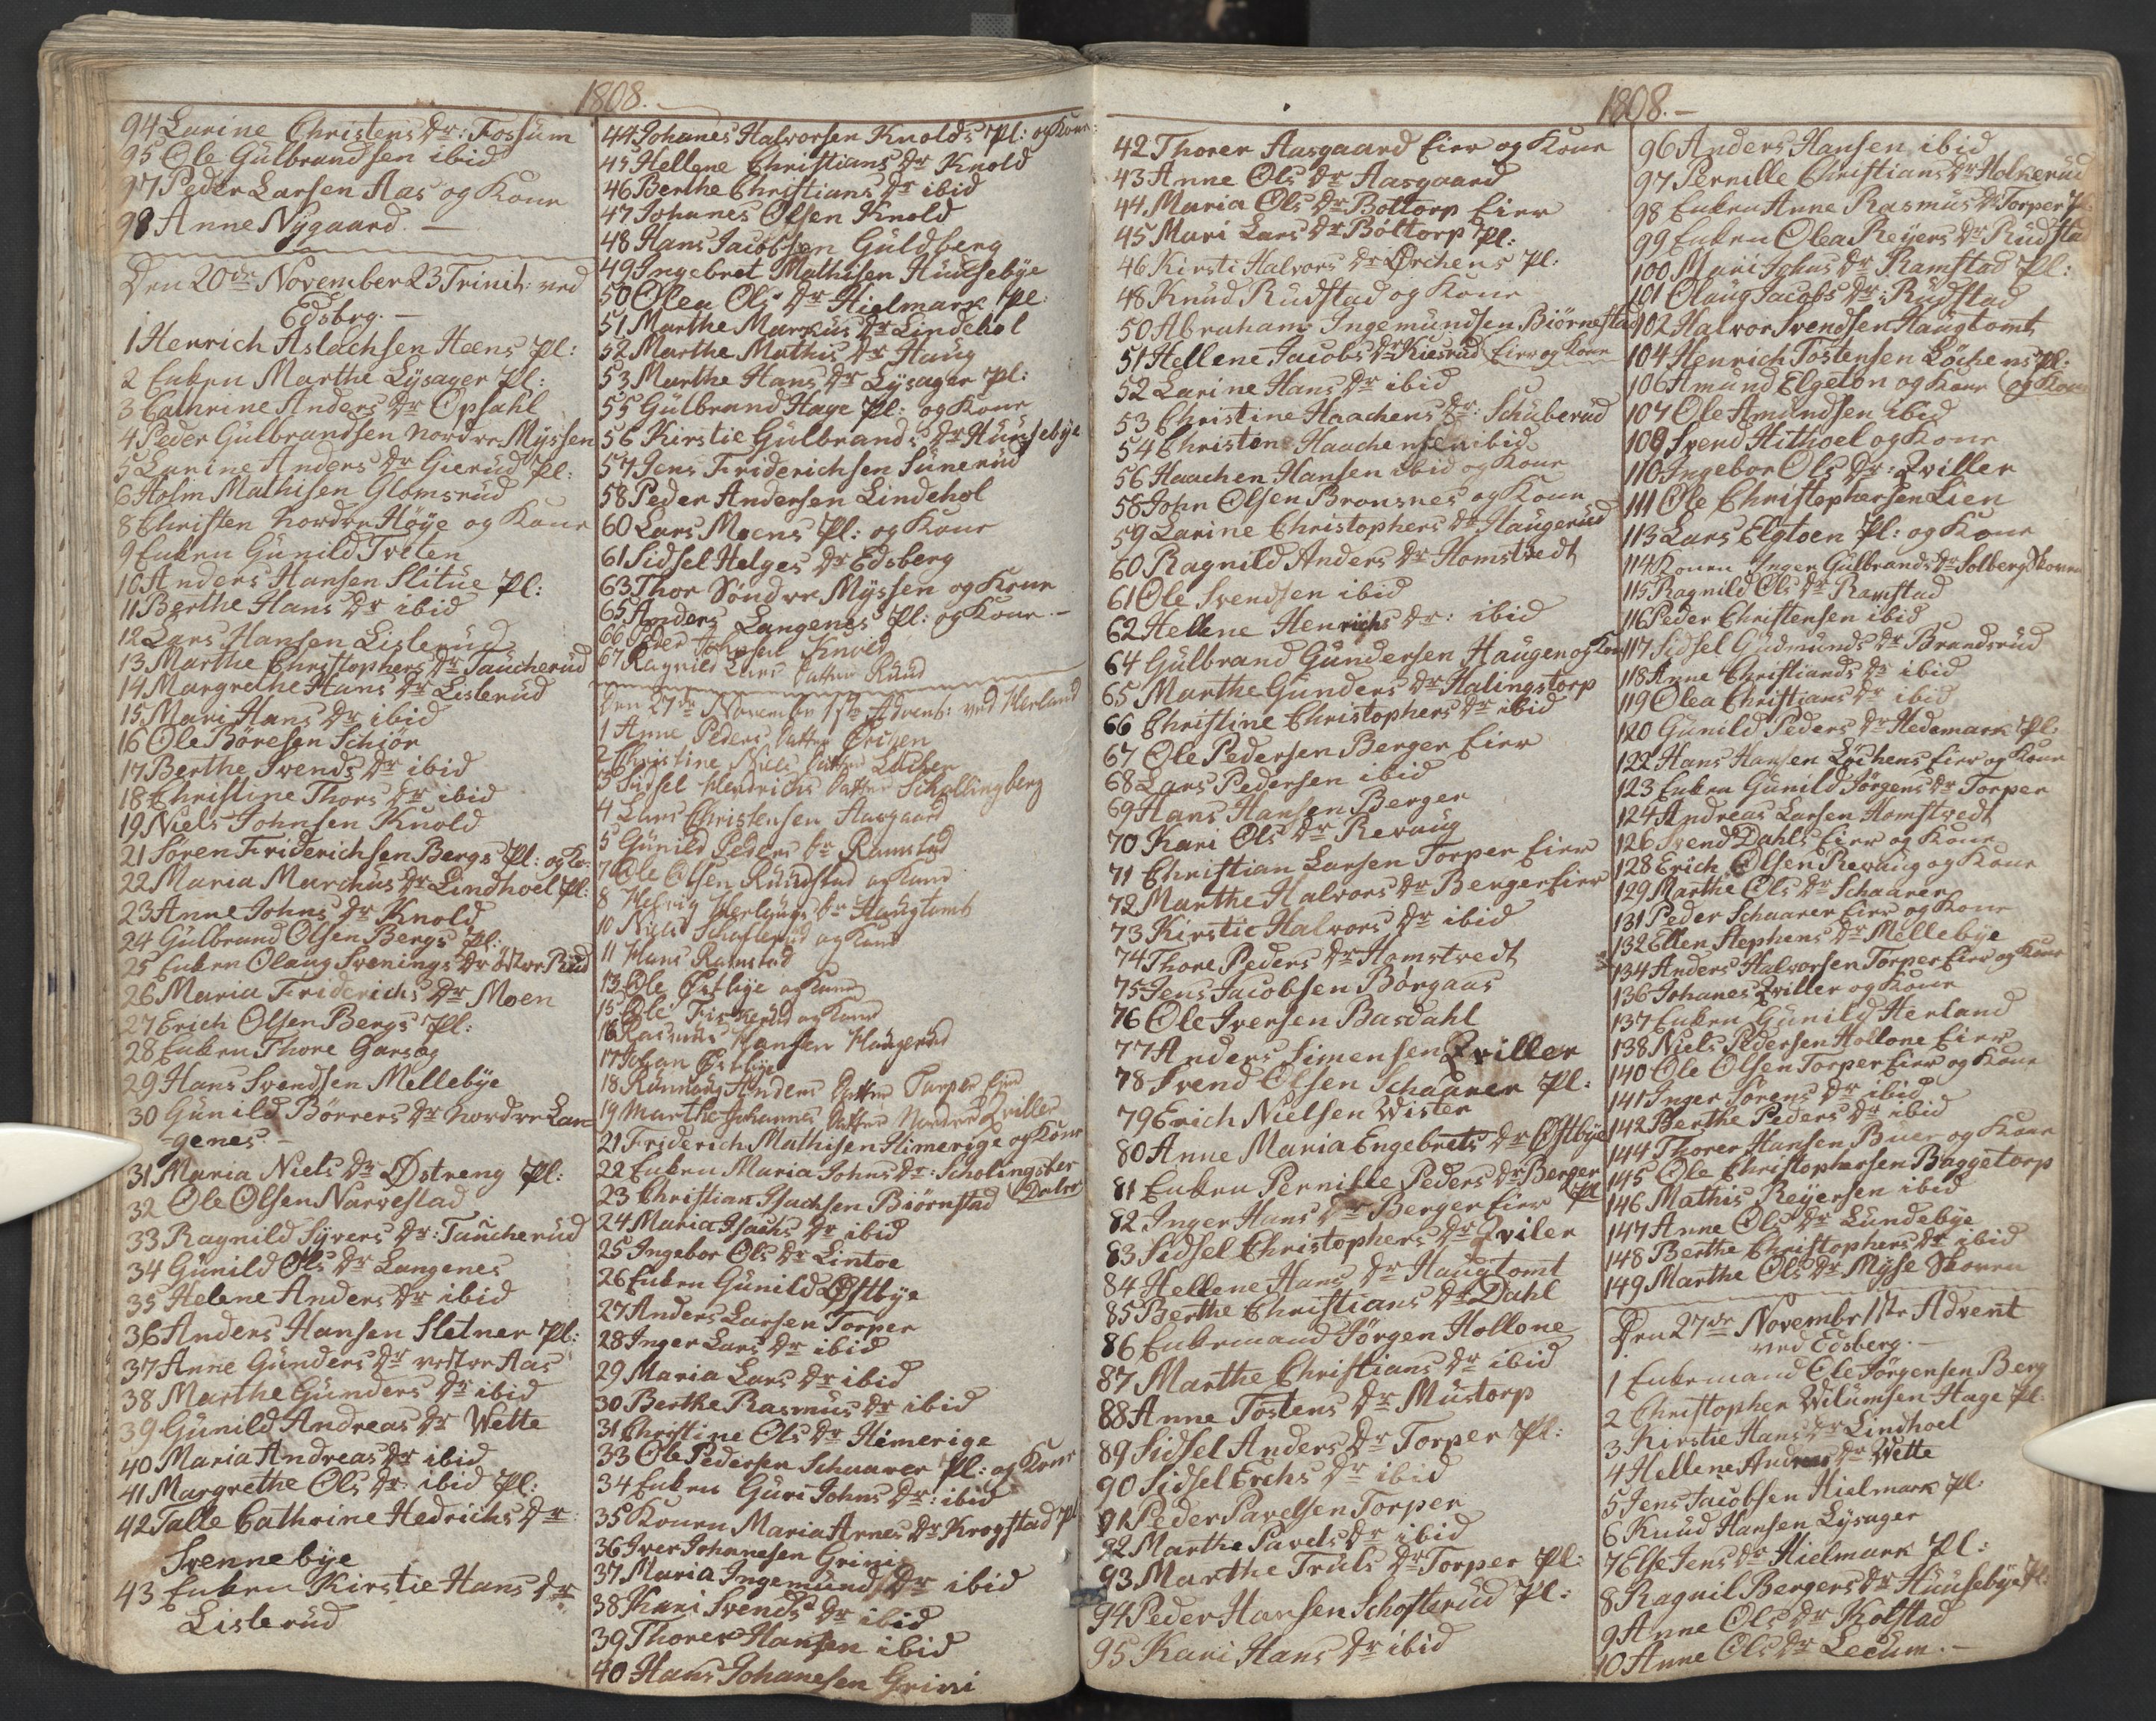 1808.
94 Larine Christens Dr: Fossum
95 Ole Gulbrandsen ibid
97 Peder Larsen Aas og Kone
98 Anne Nygaard. —
Den 20de November 23 Trinit: ved
Edsbrg. —
1 Henrich Aslachsen Heens Pl:
2 Enken Marthe Lysager Pl:
3 Cathrine Anders Dr Opsahl
4 Peder Gulbrandsen nordre Myssen
5 Larine Anders Dr Gierud Pl:
6 Holm Mathisen Glomsrud
8 Christen nordre Høye og Kone
9 Enken Gunild Tveten
10 Anders Hansen Slitue Pl:
11 Berthe Hans Dr ibid
12 Lars Hansen Lislerud
13 Marthe Christophers Dr Taucherud
14 Margrethe Hans Dr Lislerud
15 Mari Hans Dr ibid
16 Ole Børesen Schiør
17 Berthe Svends Dr ibid
18 Christine Thors Dr ibid
19 Niels Johnsen Knold
21 Søren Friderichsen Bergs Pl: og Ko:
22 Maria Marchus Dr Lindhoel Pl:
23 Anne Johns Dr Knold
24 Gulbrand Olsen Bergs Pl:
25 Enken Olaug Svenings Dr østre Rud
26 Maria Friderichs Dr Moen
27 Erich Olsen Bergs Pl:
28 Enken Thore Garseg
29 Hans Svendsen Mellebye
30 Gunild Børrers Dr nordre Lan=
=genes. —
31 Maria Niels Dr Østreng Pl:
32 Ole Olsen Narvestad
33 Ragnild Syvers Dr: Taucherud
34 Gunild Ols Dr Langenes
35 Helene Anders Dr ibid
36 Anders Hansen Sletner Pl:
37 Anne Gunders Dr vestre Aas
38 Marthe Gunders Dr ibid
39 Gunild Andreas Dr Wette
40 Maria Andreas Dr ibid
41 Margrethe Ols Dr: ibid Pl:
42 Talle Cathrine Hedrichs Dr:
Svennebye
43 Enken Kirstie Hans Dr
Lislerud
44 Johanes Halvorsen Knolds Pl: og Kone:
45 Hellene Christians Dr Knold
46 Berthe Christians Dr ibid
47 Johanes Olsen Knold
48 Hans Jacobsen Guldberg
49 Ingebret Mathisen Huusebye
50 Olea Ols Dr Hielmark Pl:
51 Marthe Markus Dr Lindehol
52 Marthe Mathis Dr Haug
53 Marthe Hans Dr Lysager Pl:
55 Gulbrand Hage Pl: og Kone
56 Kirstie Gulbrands Dr Huusebye
57 Jens Friderichsen Sunerud
58 Peder Andersen Lindehol
60 Lars Moens Pl: og Kone
61 Sidsel Helges Dr Edsberg
63 Thor Søndre Myssen og Kone
65 Anders Langenes Pl: og Kone —
66 Peder Johnsen Knold
67 Ragnild Lars Datter Ruud
Den 27de November 1ste Advent: ved Herland
1 Anne Peders Datter Ørchen
2 Christine Niels Datter Løchen
3 Sidsel Hendrichs Datter Schollingberg
4 Lars Christensen Aasgaard
5 Gunild Peders Dr Ramstad
7 Ole Olsen Ruudstad og Kone
8 Helvig Herlaugs Dr Haugtomt
10 Niels Schofterud og Kone
11 Hans Ramstad
13 Ole Østbye og Kone
15 Ole Fiskerud og Kone
16 Rasmus Hansen Haugerud
17 Johan Østbye
18 Runnoug Anders Datter Torper Eier
19 Marthe Johannes Datter Nordre Qviller
21 Friderich Mathisen Himerige og Kone
22 Enken Maria Johns Dr: Scholingsber
23 Christian Isachsen Biørnstad
24 Maria Isachs Dr ibid
25 Ingebor Ols Dr Lintoe
26 Enken Gunild Østbye
27 Anders Larsen Torper
28 Inger Lars Dr ibid
29 Maria Lars Dr ibid
30 Berthe Rasmus Dr ibid
31 Christine Ols Dr Himerige
33 Ole Pedersen Schaarer Pl: og Kone
34 Enken Guri Johns Dr: ibid
35 Konen Maria Arnes Dr Krogstad Pl
36 Iver Johanesen Grini
37 Maria Ingemunds Dr ibid
38 Kari Svends Dr ibid
39 Thorer Hansen ibid
40 Hans Johanesen Grini
1808. —
42 Thorer Aasgaard Eier og Kone
43 Anne Ols Dr Aasgaard
44 Maria Ols Dr Boltorp Eier
45 Mari Lars Dr Boltorp Pl:
46 Kirsti Halvors Dr Ørchens Pl:
48 Knud Rudstad og Kone
50 Abraham Ingemundsen Biørnestad
51 Hellene Jacobs Dr Kiesrud Eier og Kone
52 Larine Hans Dr ibid
53 Christine Haachens Dr: Schuberud
54 Christen Haachensen ibid
56 Haachen Hansen ibid og Kone
58 John Olsen Bronsnes og Kone
59 Larine Christophers Dr Haugerud
60 Ragnild Anders Dr Homstvedt
61 Ole Svendsen ibid
62 Hellene Henrichs Dr: ibid
64 Gulbrand Gundersen Haugen og Kone
65 Marthe Gunders Dr Halingstorp
66 Christine Christophers Dr ibid
67 Ole Pedersen Berger Eier
68 Lars Pedersen ibid
69 Hans Hansen Berger
70 Kari Ols Dr Revaug
71 Christian Larsen Torper Eier
72 Marthe Halvors Dr Berger Eier
73 Kirstie Halvors Dr ibid
74 Thore Peders Dr Homstvedt
75 Jens Jacobsen Børgaas
76 Ole Iversen Basdahl
77 Anders Simensen Qviller
78 Svend Olsen Schaarer Pl:
79 Erich Nielsen Wister
80 Anne Maria Engebrets Dr Østbye
81 Enken Pernille Peders Dr Berger Pl
82 Inger Hans Dr Berger Eier
83 Sidsel Christophers Dr Qviler
84 Hellene Hans Dr Haugtomt
85 Berthe Christians Dr Dahl
86 Enkemand Jørgen Hollone
87 Marthe Christians Dr ibid
88 Anne Tostens Dr Mustorp
89 Sidsel Anders Dr Torper Pl:
90 Sidsel Erchs Dr ibid
91 Peder Pavelsen Torper
92 Marthe Pavels Dr ibid
93 Marthe Truls Dr Torper Pl:
94 Peder Hansen Schofterud Pl:
95 Kari Hans Dr ibid
96 Anders Hansen ibid
97 Pernille Christians Dr Holkerud
98 Enken Anne Rasmus Dr Torper Pl
99 Enken Olea Reyers Dr Rudstad
100 Mari Johns Dr Ramstad Pl:
101 Olaug Jacobs Dr: Rudstad
102 Halvor Svendsen Haugtomt
104 Henrich Tostensen Løchens Pl:
106 Amund Elgeton og Kone og Kone
107 Ole Amundsen ibid
109 Svend Hithoel og Kone
110 Ingebor Ols Dr: Qviller
111 Ole Christophersen Lien
113 Lars Elgtoen Pl: og Kone
114 Konen Inger Gulbrands Dr Solberg Skoven
115 Ragnild Ols Dr Ramstad
116 Peder Christensen ibid
117 Sidsel Gudmunds Dr Brandsrud
118 Anne Christians Dr ibid
119 Olea Christians Dr ibid
120 Gunild Peders Dr Hedemark Pl:
122 Hans Hansen Løchens Eier og Kone
123 Enken Gunild Jørgens Dr Torper
124 Andreas Larsen Homstvedt
126 Svend Dahls Eier og Kone
128 Erich Olsen Revaug og Kone
129 Marthe Ols Dr Schaarer
131 Peder Schaarer Eier og Kone
132 Ellen Stephens Dr Mellebye
134 Anders Halvorsen Torper Eier og Kone
136 Johanes Qviller og Kone
137 Enken Gunild Herland
138 Niels Pedersen Hollone Eier
140 Ole Olsen Torper Eier og Kone
141 Inger Sørens Dr ibid
142 Berthe Peders Dr ibid
144 Thorer Hansen Buer og Kone
145 Ole Christophersen Baggetorp
146 Mathis Reyersen ibid
147 Anne Ols Dr Lundebye
148 Berthe Christophers Dr ibid
149 Marthe Ols Dr Myse Skoven
Den 27de Novembr 1ste Advent
ved Edsberg. —
1 Enkemand Ole Jørgensen Berg
2 Christopher Wilumsen Hage Pl:
3 Kirstie Hans Dr Lindhoel
4 Hellene Andreas Dr Wette
5 Jens Jacobsen Hielmark Pl:
6 Knud Hansen Lysager
7 Else Jens Dr Hielmark Pl:
8 Ragnil Bergers Dr Huusebye Pl:
9 Anne Ols Dr Kolstad
10 Anne Ols Dr Leeum. —